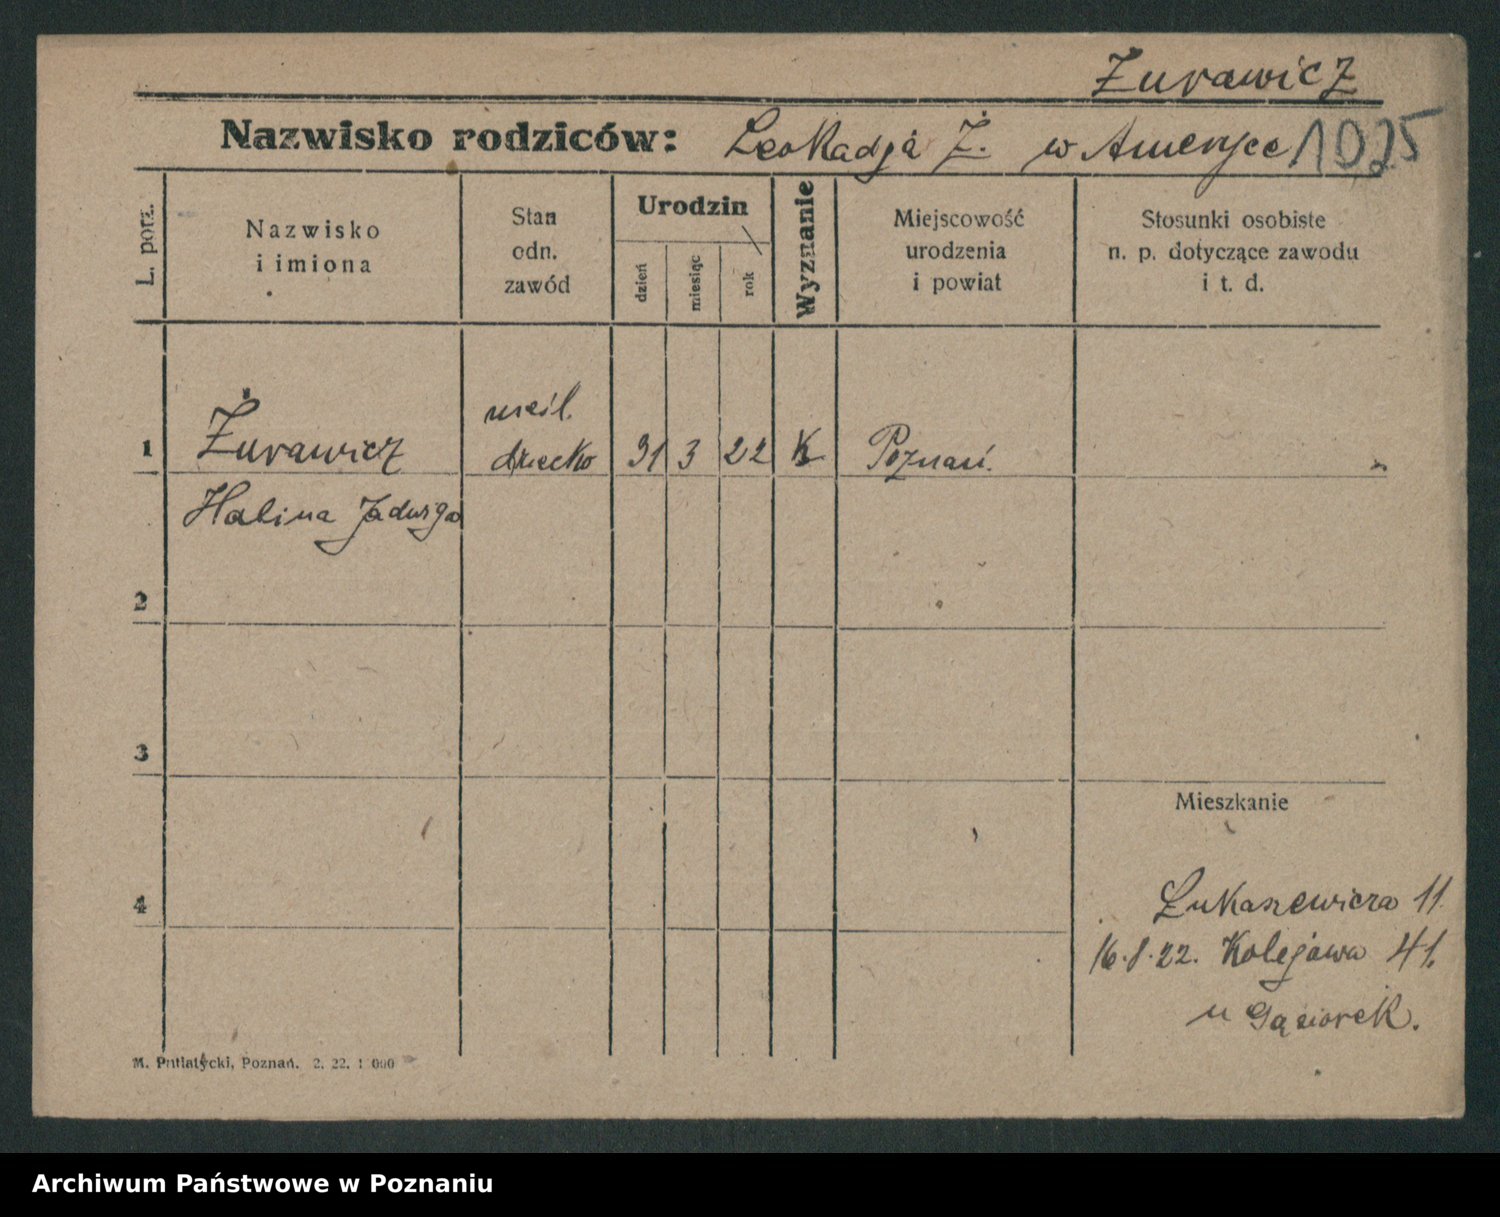 Żurawicz
Nazwisko rodziców: Leokadja Ż. w Ameryce 1025
L. porz.
Nazwisko
i imiona
Stan
odn.
zawód
Urodzin
dzień
miesiąc
rok
Wyznanie
Miejscowość
urodzenia
i powiat
Stosunki osobiste
n. p. dotyczące zawodu
i t. d.
1 Żurawicz nieśl. dziecko 31 3 22 K Poznań.
Halina Jadwiga
2
3
Mieszkanie
4
Łukaszewicza 11
16.8.22. Kolejowa 41.
u Gąsiorek.
M. Putiatycki, Poznań. 2. 22. 1 000
Archiwum Państwowe w Poznaniu